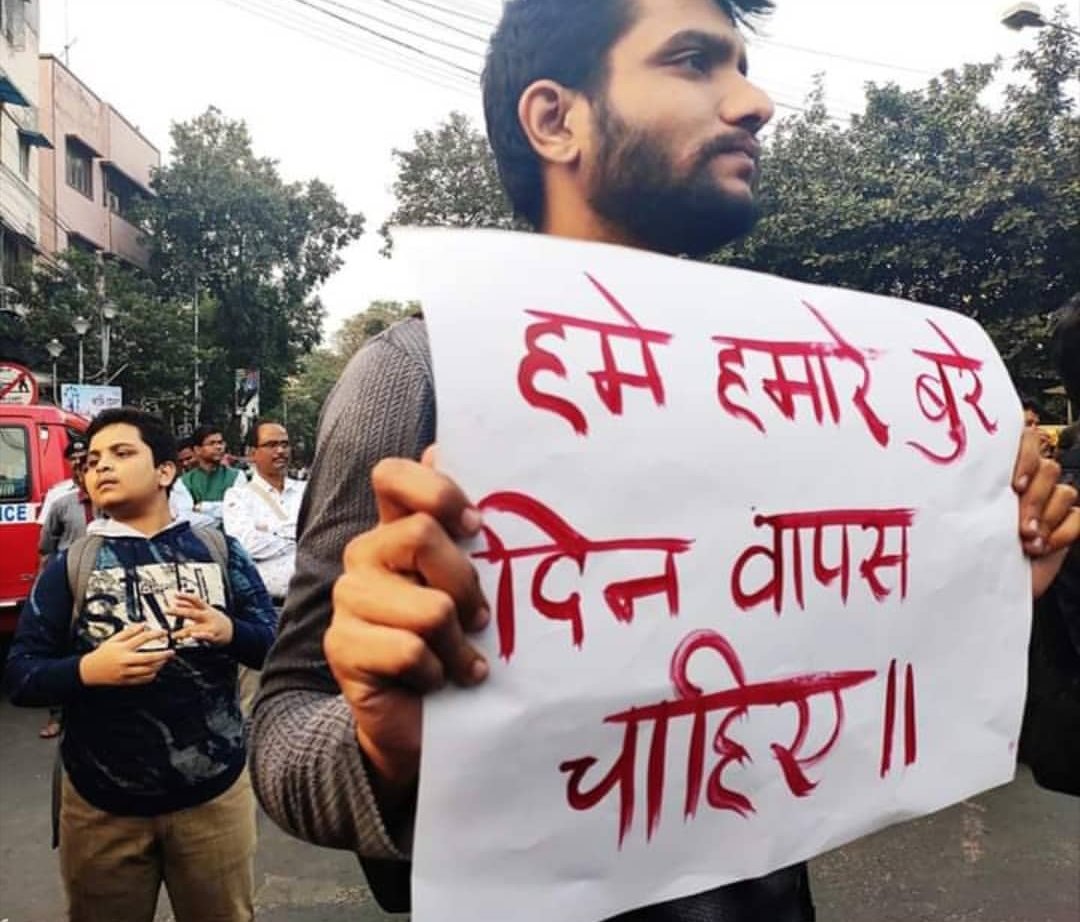 हमे हमारे बुरे
दिन वापस
चाहिए॥
ICE